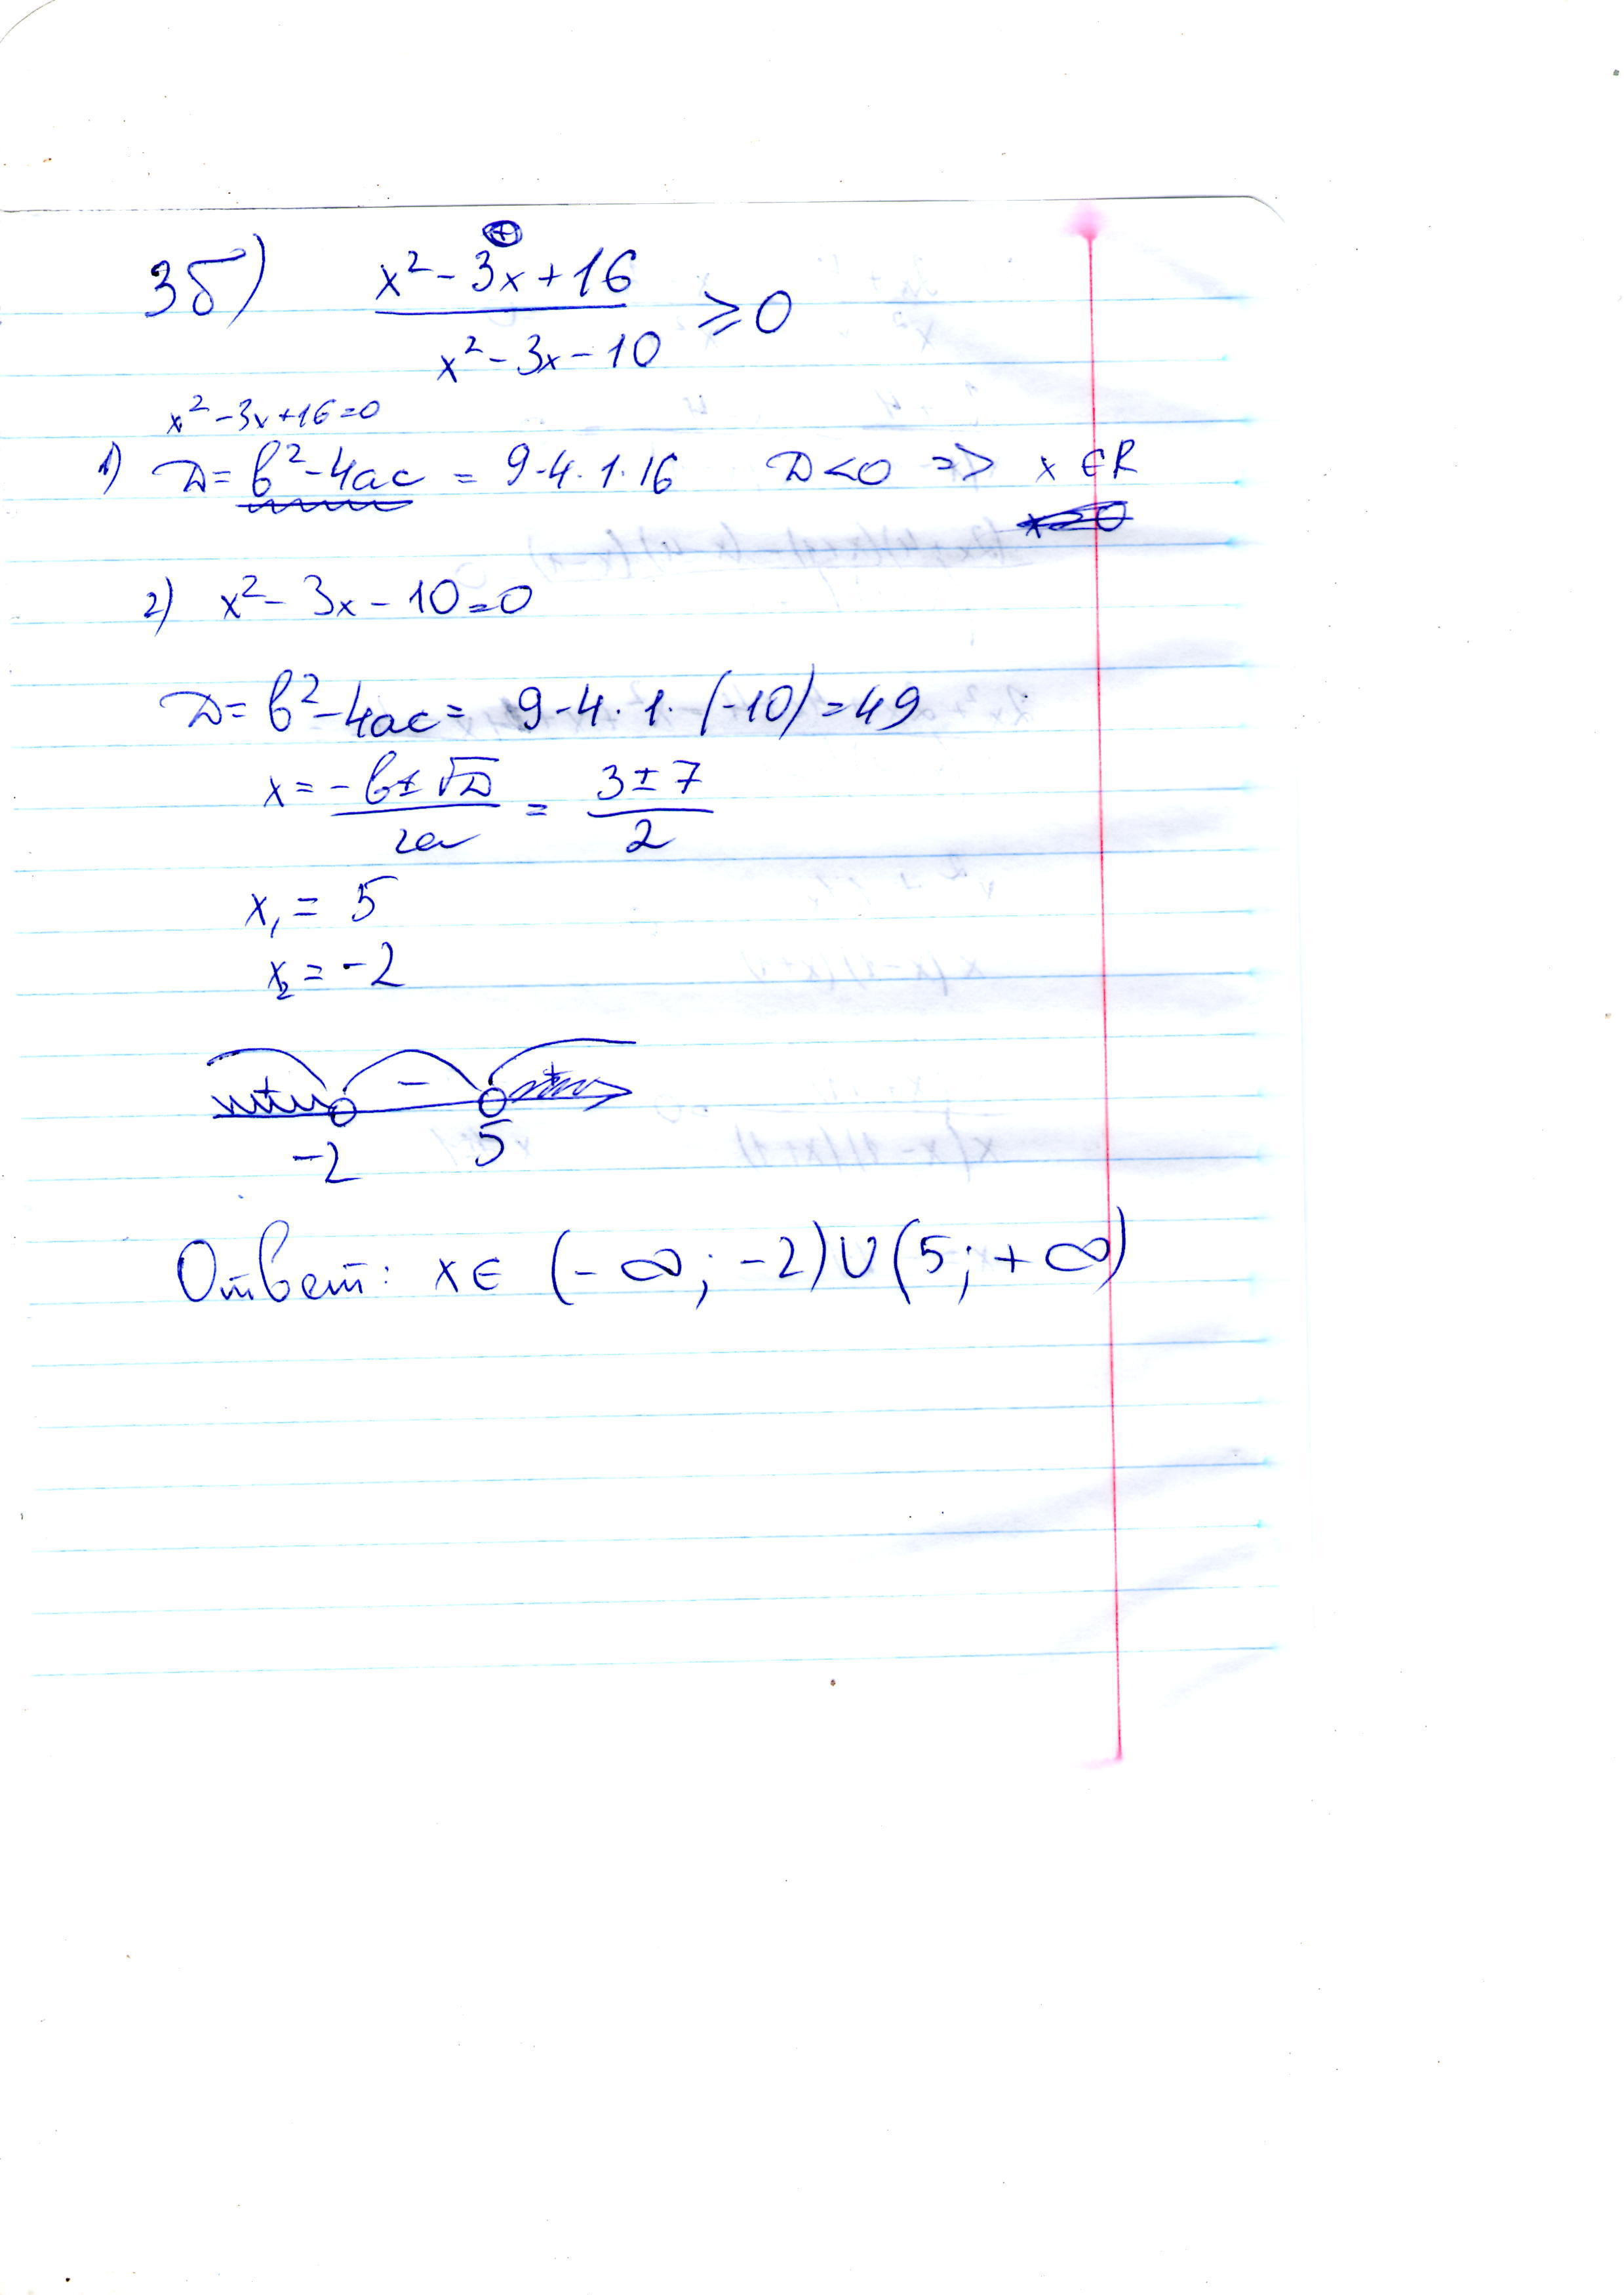 3б) (x² - 3x + 16) / (x² - 3x - 10) ⩾ 0
x² - 3x + 16 = 0
1) D = b² - 4ac = 9 - 4 · 1 · 16 D < 0 => x ∈ R
2) x² - 3x - 10 = 0
D = b² - 4ac = 9 - 4 · 1 · (-10) = 49
x = (-b ± √D) / 2a = (3 ± 7) / 2
x₁ = 5
x₂ = -2
+ - +
-2 5
Ответ: x ∈ (-∞; -2) ∪ (5; +∞)